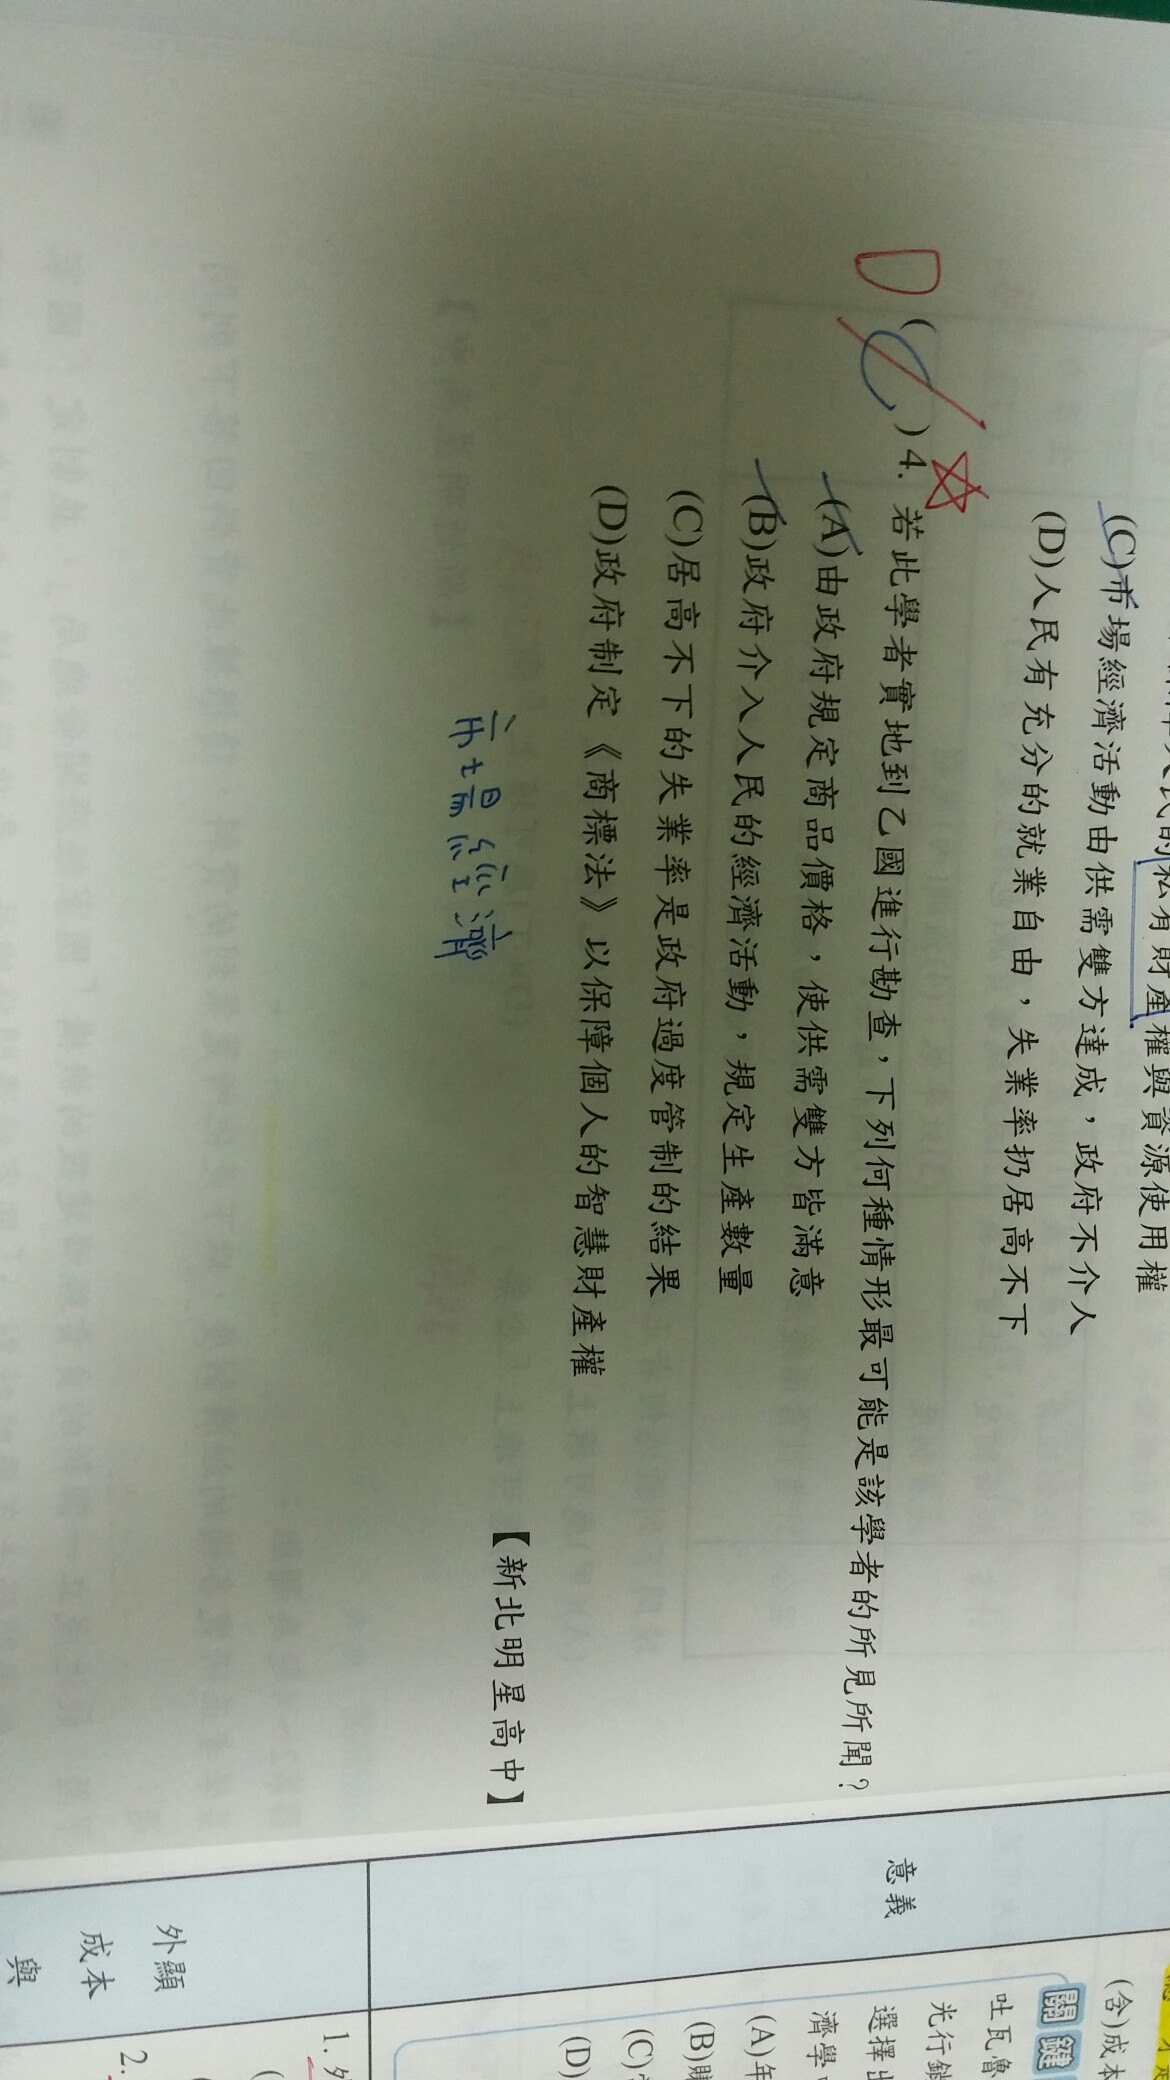 人民的私有財產權與資源使用權
(C)市場經濟活動由供需雙方達成，政府不介入
(D)人民有充分的就業自由，失業率扔居高不下
D (C) 4. 若此學者實地到乙國進行勘查，下列何種情形最可能是該學者的所見所聞？
(A)由政府規定商品價格，使供需雙方皆滿意
(B)政府介入人民的經濟活動，規定生產數量
(C)居高不下的失業率是政府過度管制的結果
(D)政府制定《商標法》以保障個人的智慧財產權
【新北明星高中】
市場經濟
意義
外顯
成本
與
(含)成本
關鍵
吐瓦魯
光行銷
選擇出
濟學
(A)年
(B)購
(C)
(D)
1. 外
2.